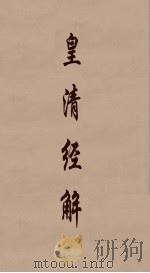 皇清经解
mtoou.info
研狗